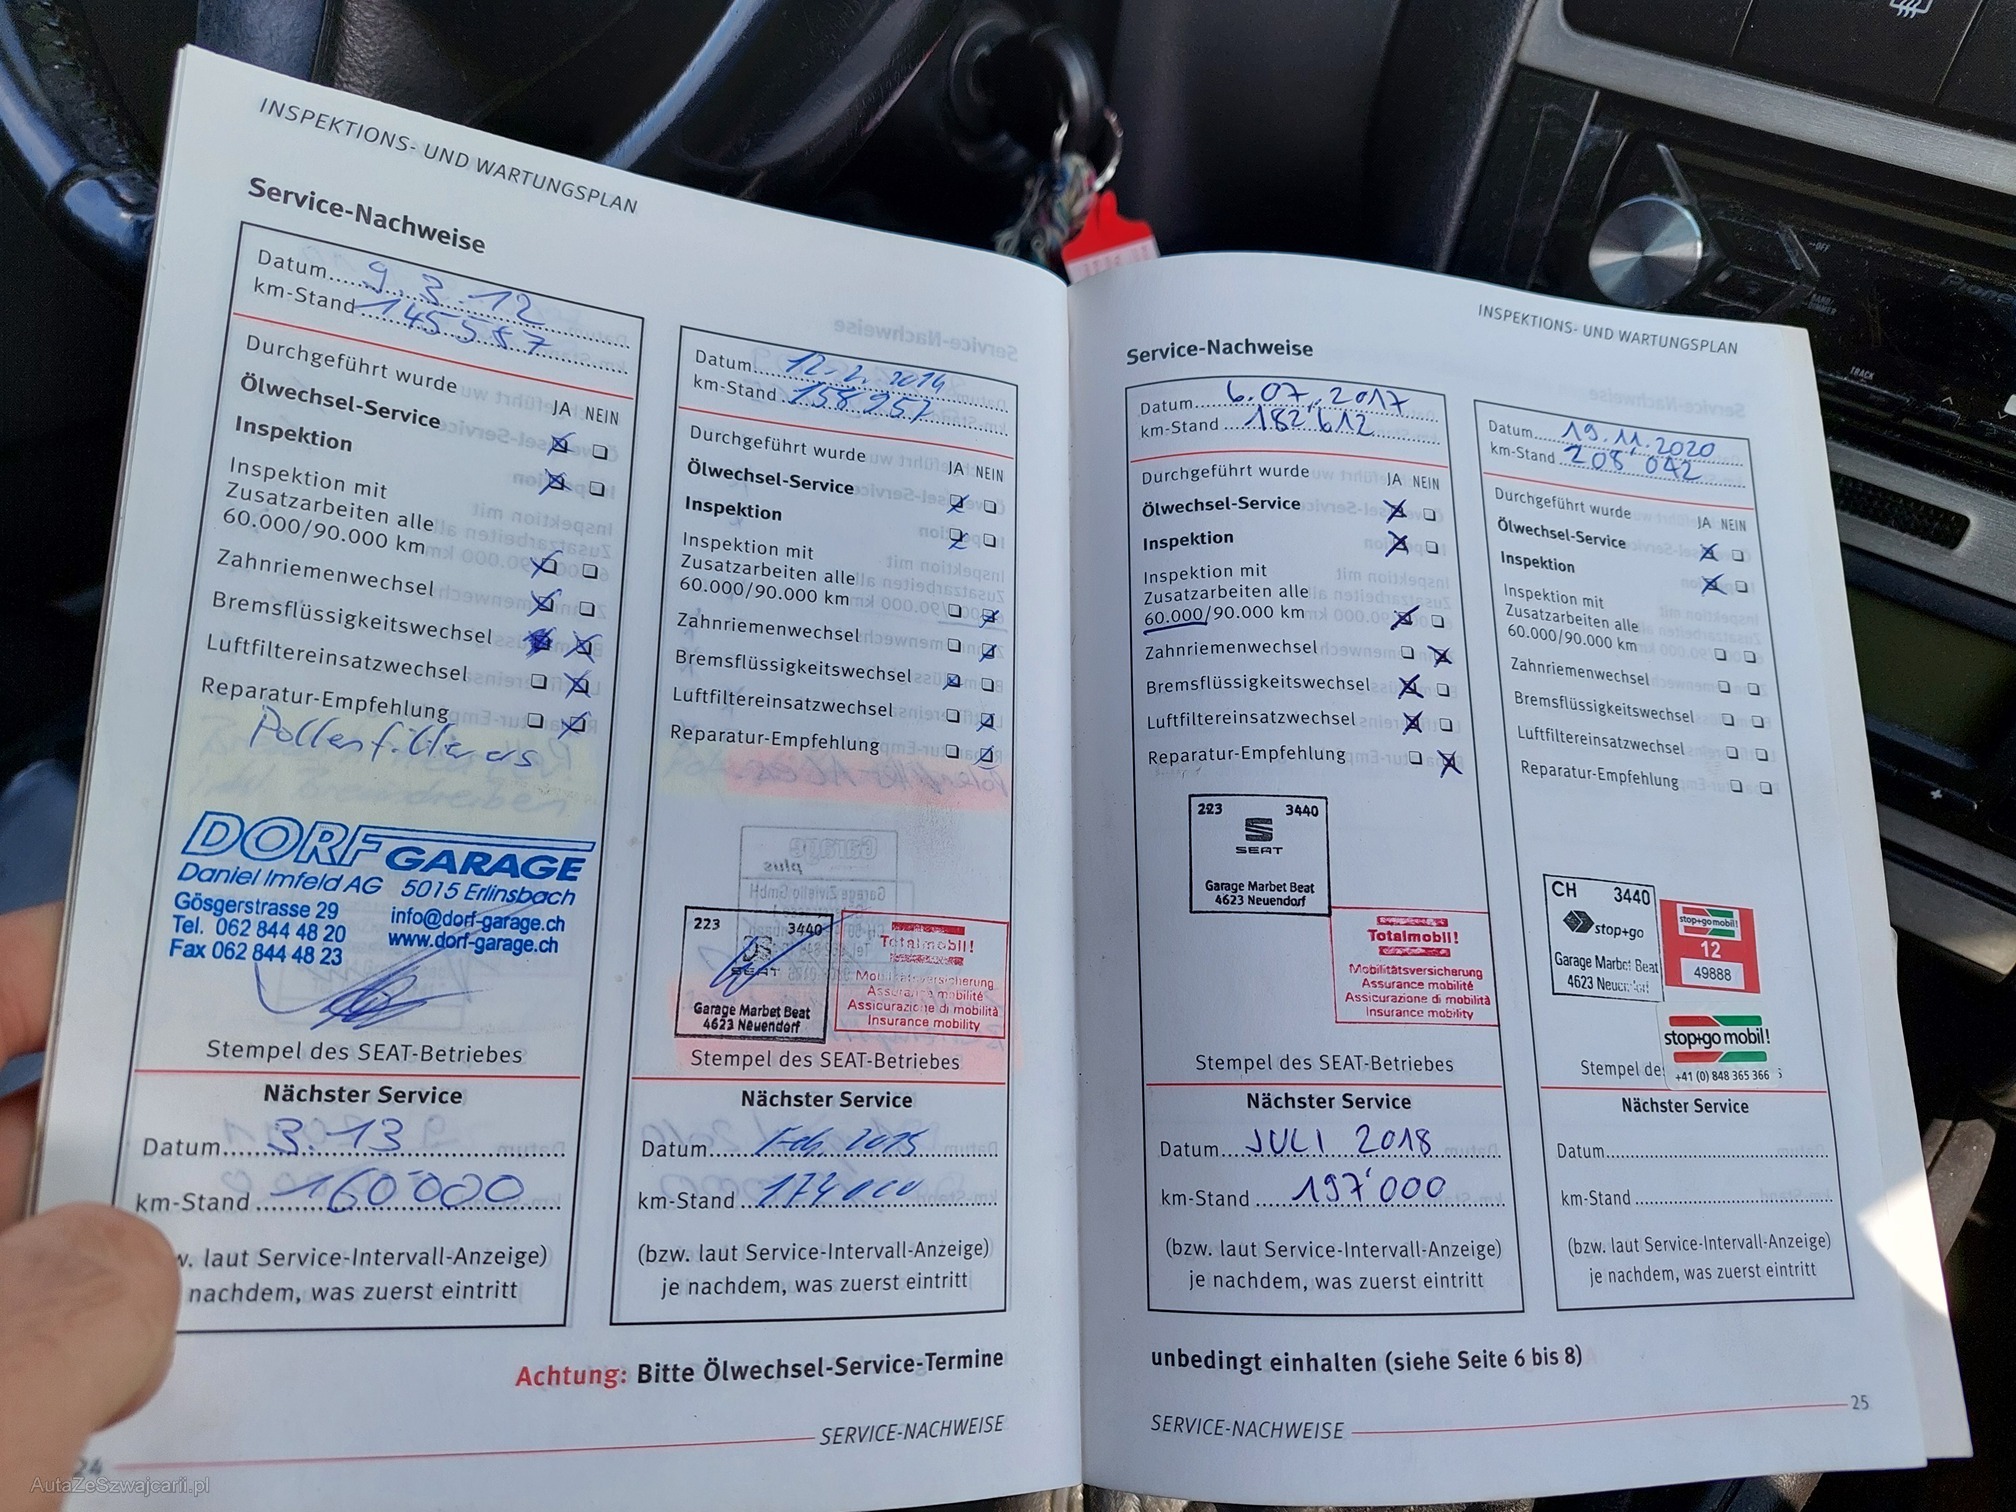 INSPEKTIONS- UND WARTUNGSPLAN
Service-Nachweise
Datum 9.3.12
km-Stand 145587
Durchgeführt wurde JA NEIN
Ölwechsel-Service
Inspektion
Inspektion mit
Zusatzarbeiten alle
60.000/90.000 km
Zahnriemenwechsel
Bremsflüssigkeitswechsel
Luftfiltereinsatzwechsel
Reparatur-Empfehlung
Pollenfilter
DORFGARAGE
Daniel Imfeld AG 5015 Erlinsbach
Gösgerstrasse 29 info@dorf-garage.ch
Tel. 062 844 48 20 www.dorf-garage.ch
Fax 062 844 48 23
Stempel des SEAT-Betriebes
Nächster Service
Datum 3.13
km-Stand 160'000
w. laut Service-Intervall-Anzeige)
nachdem, was zuerst eintritt
Datum 12.2.2014
km-Stand 158957
Durchgeführt wurde JA NEIN
Ölwechsel-Service
Inspektion
Inspektion mit
Zusatzarbeiten alle
60.000/90.000 km
Zahnriemenwechsel
Bremsflüssigkeitswechsel
Luftfiltereinsatzwechsel
Reparatur-Empfehlung
223 3440
SEAT
Garage Marbet Beat
4623 Neuendorf
Totalmobil!
Mobilitätsversicherung
Assurance mobilité
Assicurazione di mobilità
Insurance mobility
Stempel des SEAT-Betriebes
Nächster Service
Datum Feb. 2015
km-Stand 174000
(bzw. laut Service-Intervall-Anzeige)
je nachdem, was zuerst eintritt
Achtung: Bitte Ölwechsel-Service-Termine
SERVICE-NACHWEISE
24
INSPEKTIONS- UND WARTUNGSPLAN
Service-Nachweise
Datum 6.07.2017
km-Stand 182'612
Durchgeführt wurde JA NEIN
Ölwechsel-Service
Inspektion
Inspektion mit
Zusatzarbeiten alle
60.000/90.000 km
Zahnriemenwechsel
Bremsflüssigkeitswechsel
Luftfiltereinsatzwechsel
Reparatur-Empfehlung
223 3440
SEAT
Garage Marbet Beat
4623 Neuendorf
Totalmobil!
Mobilitätsversicherung
Assurance mobilité
Assicurazione di mobilità
Insurance mobility
Stempel des SEAT-Betriebes
Nächster Service
Datum JULI 2018
km-Stand 197'000
(bzw. laut Service-Intervall-Anzeige)
je nachdem, was zuerst eintritt
Datum 19.11.2020
km-Stand 208 042
Durchgeführt wurde JA NEIN
Ölwechsel-Service
Inspektion
Inspektion mit
Zusatzarbeiten alle
60.000/90.000 km
Zahnriemenwechsel
Bremsflüssigkeitswechsel
Luftfiltereinsatzwechsel
Reparatur-Empfehlung
CH 3440
stop+go
Garage Marbet Beat
4623 Neuendorf
stop+go mobil!
12
49888
stop+go mobil!
+41 (0) 848 365 366
Stempel de
Nächster Service
Datum
km-Stand
(bzw. laut Service-Intervall-Anzeige)
je nachdem, was zuerst eintritt
unbedingt einhalten (siehe Seite 6 bis 8)
SERVICE-NACHWEISE
25
AutaZeSzwajcarii.pl